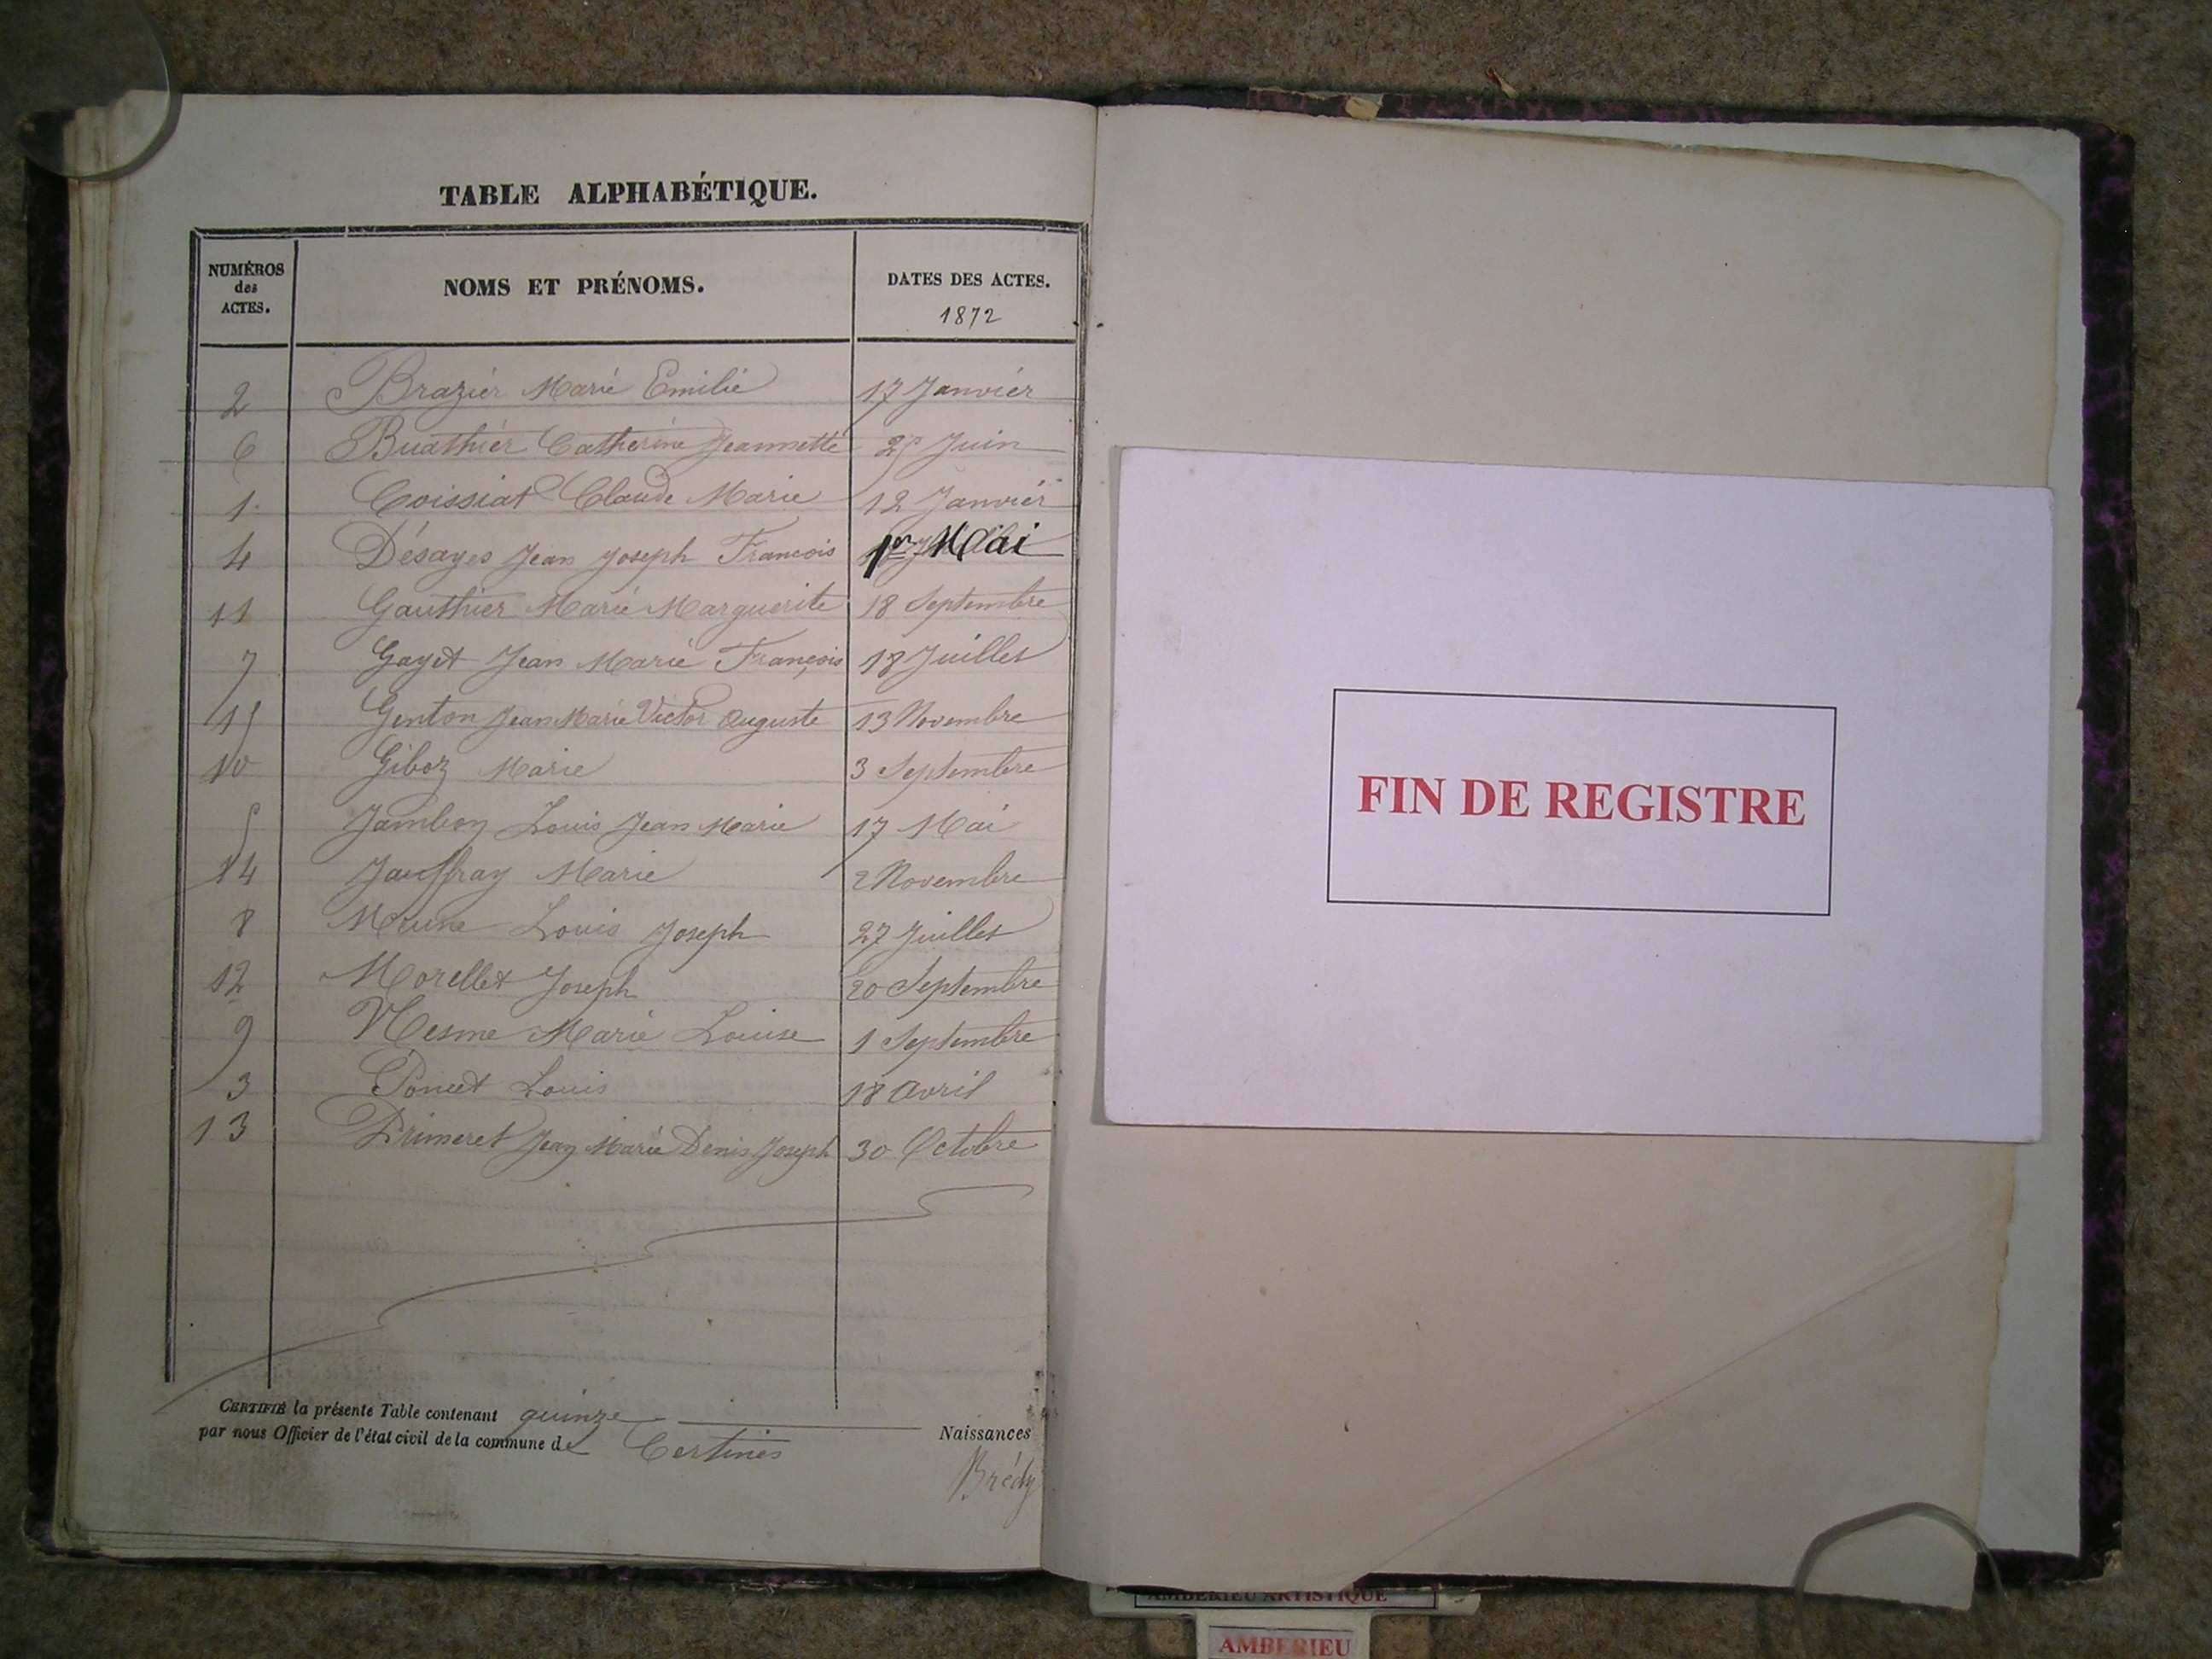 TABLE ALPHABÉTIQUE.
NUMÉROS des ACTES. NOMS ET PRÉNOMS. DATES DES ACTES.
1872
2 Brazier Marie Emilie 17 Janvier
6 Buathier Catherine Jeannette 25 Juin
1 Coissiat Claude Marie 12 Janvier
4 Désayes Jean Joseph François 1er Mai
11 Gauthier Marie Marguerite 18 Septembre
7 Gayet Jean Marie François 18 Juillet
15 Genton Jean Marie Victor Auguste 13 Novembre
10 Giboz Marie 3 Septembre
5 Jambon Louis Jean Marie 17 Mai
14 Jauffray Marie 2 Novembre
8 Louis Joseph 27 Juillet
12 Morellet Joseph 20 Septembre
9 Nesme Marie Louise 1 Septembre
3 Poncet Louis 18 Avril
13 Primeret Jean Marie Denis Joseph 30 Octobre
CERTIFIÉ la présente Table contenant quinze Naissances
par nous Officier de l'état civil de la commune de Certines
Brédy
FIN DE REGISTRE
AMBERIEU ARTISTIQUE
AMBERIEU